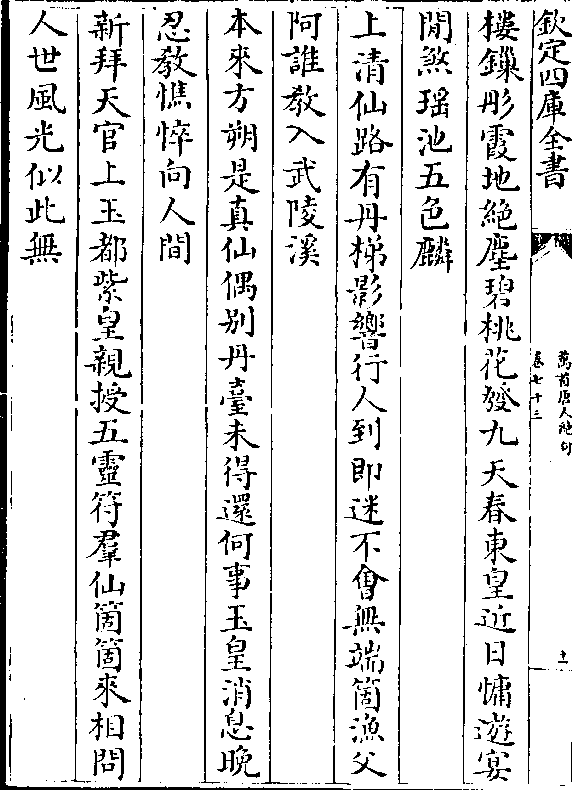 欽定四庫全書
萬首唐人絶句
卷七十三
十一
樓鏁彤霞地絶塵碧桃花發九天春東皇近日慵遊宴
閒煞瑶池五色麟
上清仙路有丹梯影響行人到即迷不會無端箇漁父
阿誰教入武陵溪
本來方朔是真仙偶别丹臺未得還何事玉皇消息晚
忍教憔悴向人間
新拜天官上玉都紫皇親授五靈符羣仙箇箇來相問
人世風光似此無